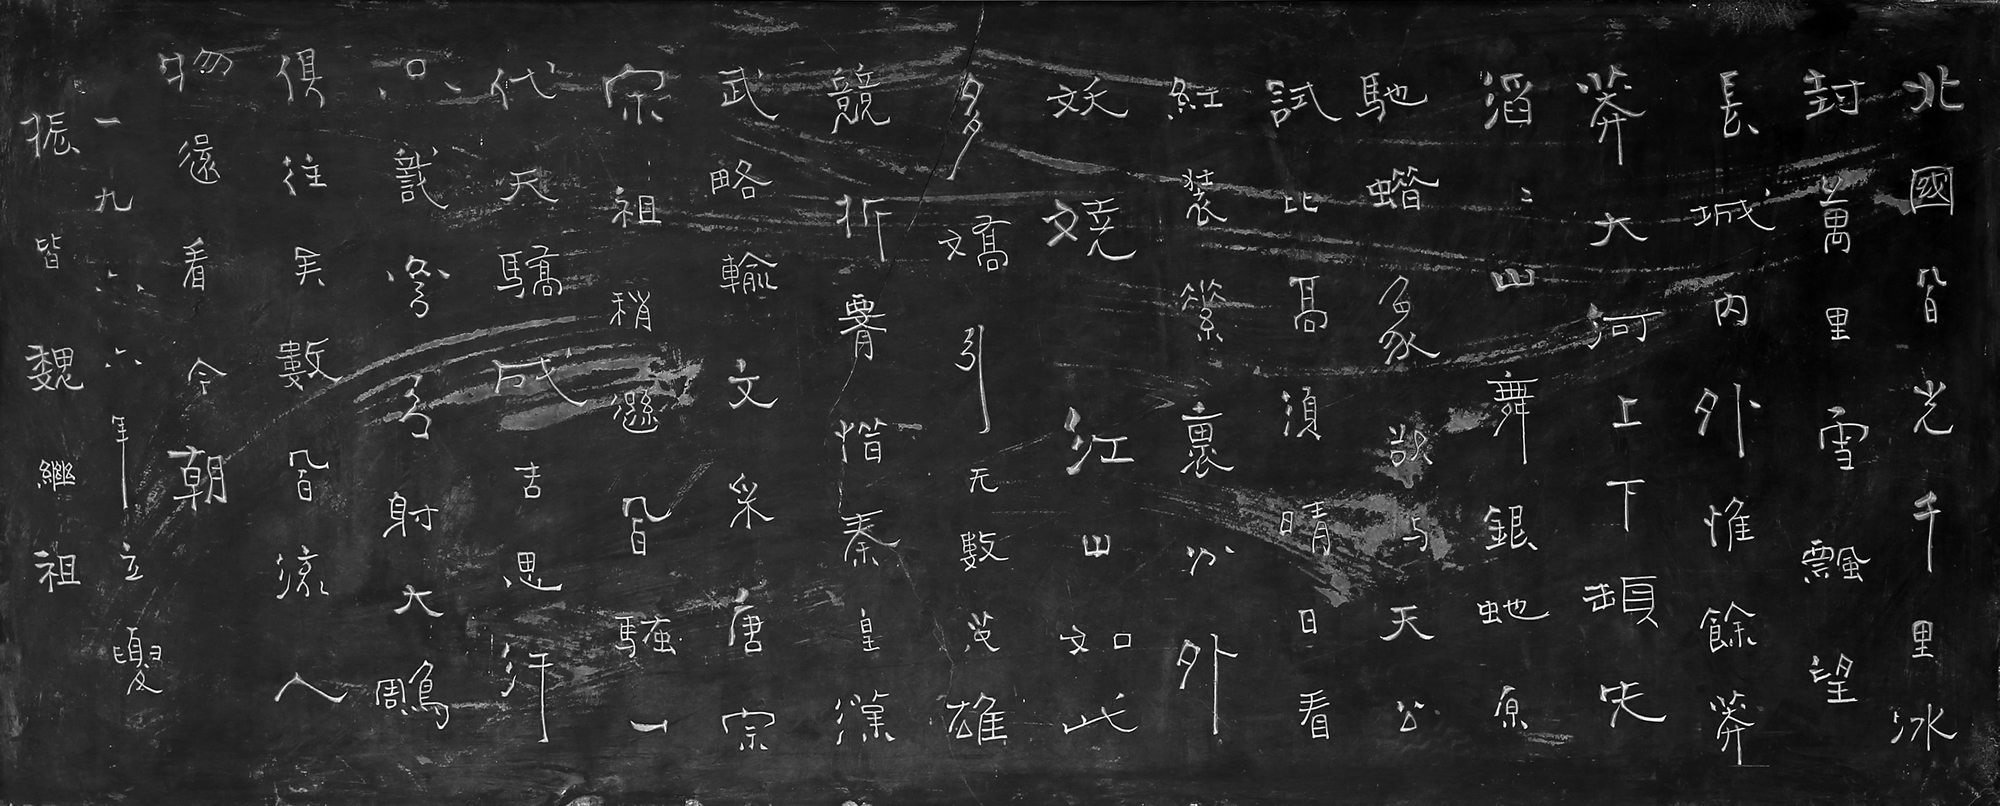 北國凬光千里冰
封萬里雪飄望
長城內外惟餘莽
莽大河上下頓失
滔〻山舞銀虵原
馳蠟象欲与天公
試比高須晴日看
紅裝素裹分外
妖嬈江山如此
多嬌引无數英雄
競折腰惜秦皇漢
武略輸文采唐宗
宋祖稍遜凬騷一
代天驕成吉思汗
只識彎弓射大鵰
俱往矣數凬流人
物還看今朝
一九六六年立夏
振皆魏繼祖